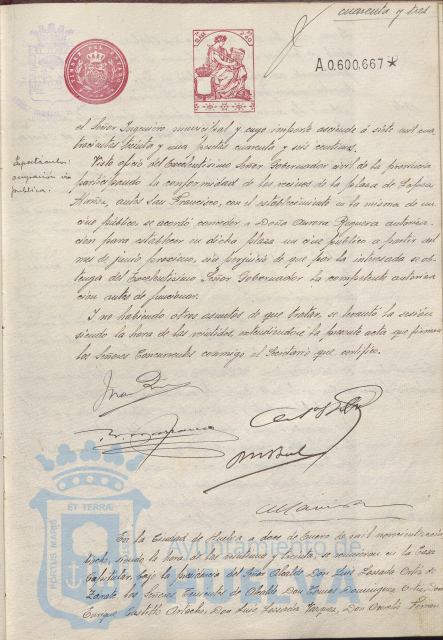 cuarenta y tres
A.0.600.667*
el Señor Ingeniero municipal y cuyo importe asciende á siete mil
trescientas treinta y una pesetas cuarenta y seis centimos.
Espectaculos:
ocupación via
publica.
Visto oficio del Excelentísimo Señor Gobernador civil de la provincia
participando la conformidad de los vecinos de la plaza de Lopez
Muñoz, antes San Francisco, con el establecimiento en la misma de un
cine público, se acordó conceder a Doña Aurora autoriza-
cion para establecer en dicha plaza un cine publico a partir del
mes de junio proximo, sin perjuicio de que por la interesada se ob-
tenga del Excelentísimo Señor Gobernador la competente autoriza-
cion antes de funcionar.
Y no habiendo otros asuntos de que tratar, se levantó la sesión
siendo la hora de las veintidos, extendiendose la presente acta que firman
los Señores Concurrentes conmigo el Secretario que certifico.
ET TERRÆ
PORTUS MARIS
Ayuntamiento
En la Ciudad de Huelva a doce de Enero de mil novecientos
siendo la hora de las veintiuna y treinta, se reunieron en la Casa
Capitular, bajo la presidencia del Señor Alcalde Don Luis
Zarate los Señores Tenientes de Alcalde Don Tomas Dominguez Ortiz, Don
Enrique Don Luis Vazquez, Don